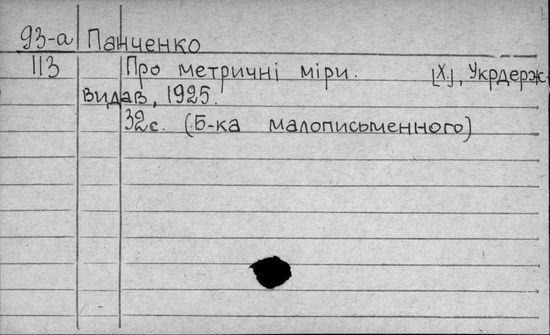 93-а Панченко
113 Про метричні міри. [Х.], Укрдерж-
видав, 1925.
32с. (Б-ка малописьменного)